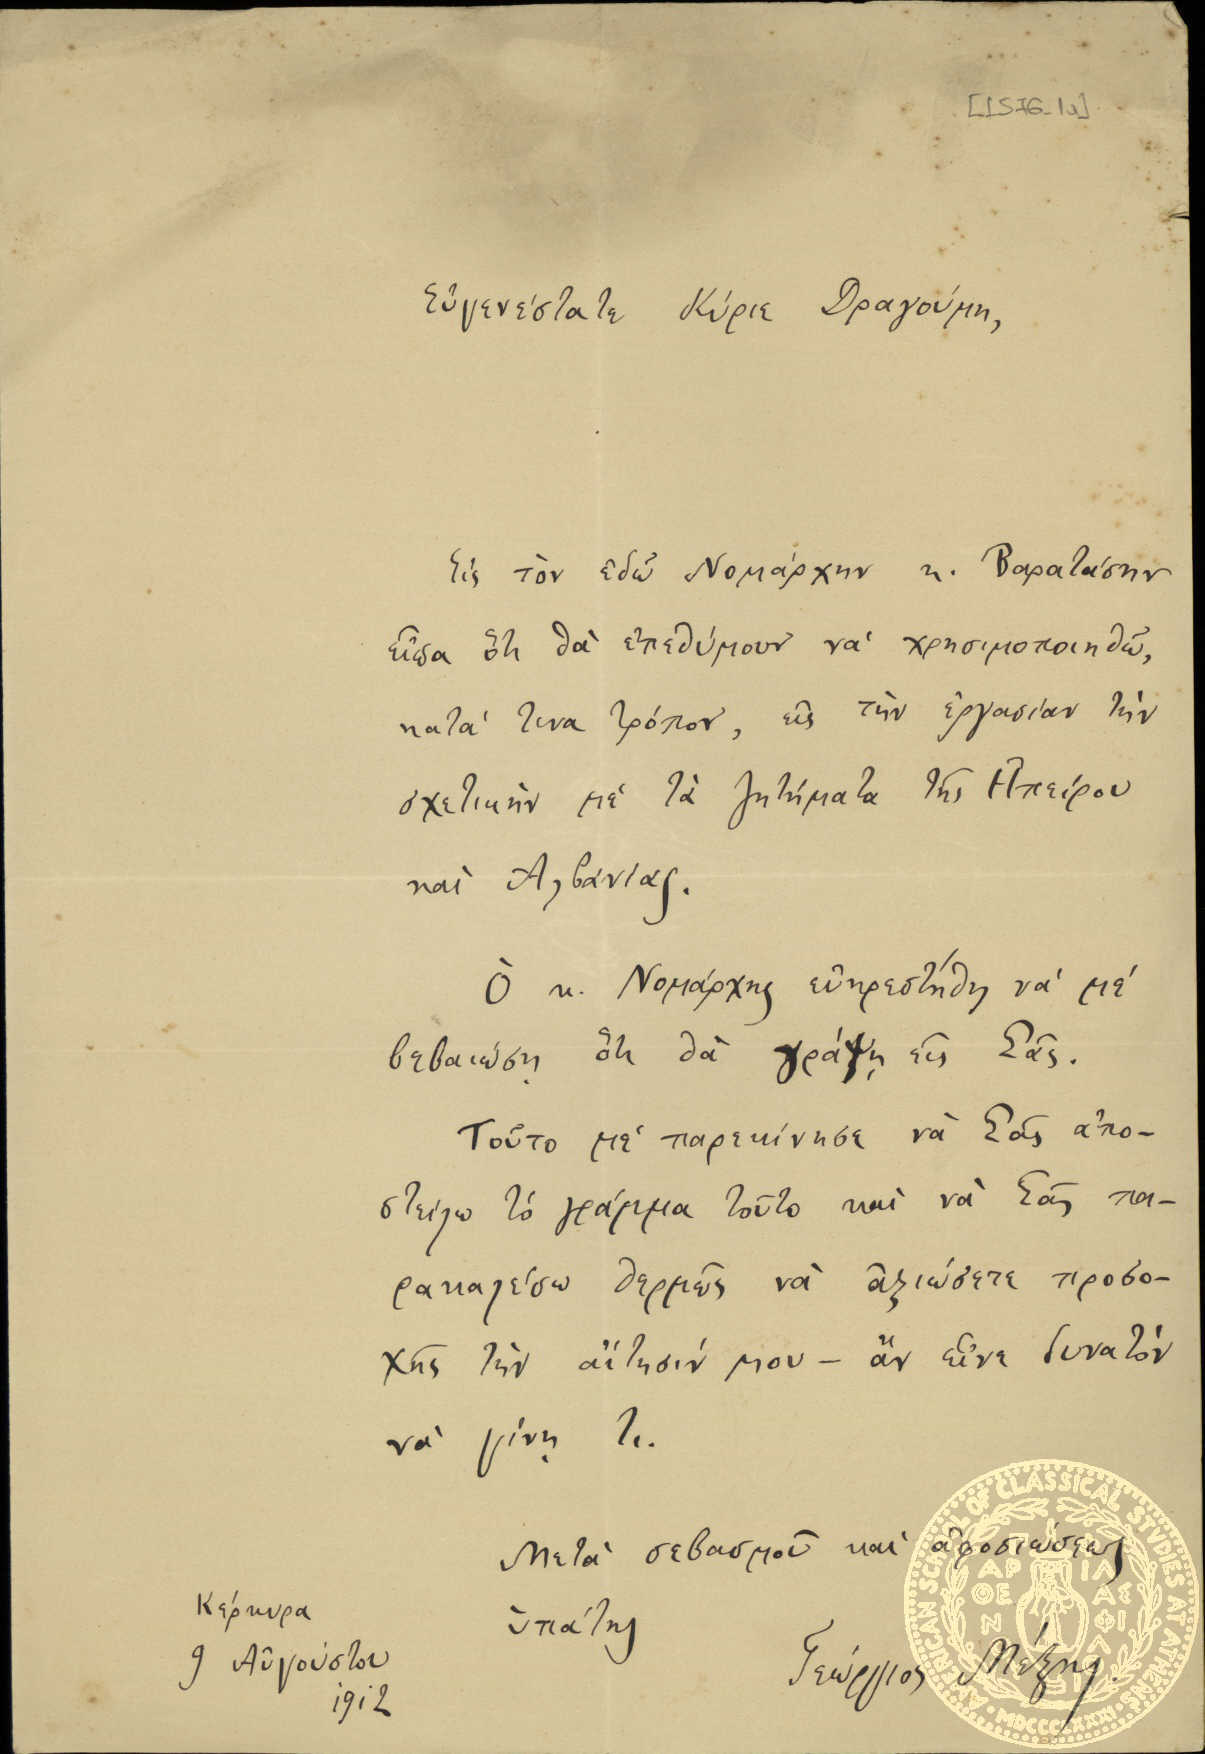 [1576-1a]
Εὐγενέστατε Κύριε Δραγούμη,
Εἰς τὸν ἐδῶ Νομάρχην κ. Βαρατάσην
εἶπα ὅτι θὰ ἐπεθύμουν νὰ χρησιμοποιηθῶ,
κατά τινα τρόπον, εἰς τὴν ἐργασίαν τὴν
σχετικὴν μὲ τὰ ζητήματα τῆς Ἠπείρου
καὶ Ἀλβανίας.
Ὁ κ. Νομάρχης εὐηρεστήθη νὰ μὲ
βεβαιώσῃ ὅτι θὰ γράψῃ εἰς Σᾶς.
Τοῦτο μὲ παρεκίνησε νὰ Σᾶς ἀπο-
στείλω τὸ γράμμα τοῦτο καὶ νὰ Σᾶς πα-
ρακαλέσω θερμῶς νὰ ἀξιώσετε προσο-
χῆς τὴν αἴτησίν μου – ἂν εἶνε δυνατὸν
νὰ γίνῃ τι.
Μετὰ σεβασμοῦ καὶ ἀφοσιώσεως
ὑπάτης
Γεώργιος Μέξης.
Κέρκυρα
9 Αὐγούστου
1912
AMERICAN SCHOOL OF CLASSICAL STUDIES AT ATHENS
MDCCCLXXXI
ΠΑΡΘΕΝ
ΑΡΙΛΑΣ